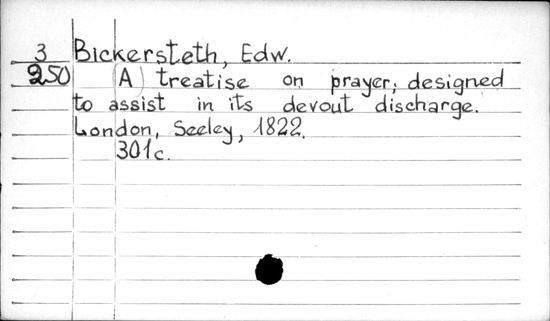 3 Bickersteth, Edw.
250 (A) treatise on prayer; designed
to assist in its devout discharge.
London, Seeley, 1822.
301c.